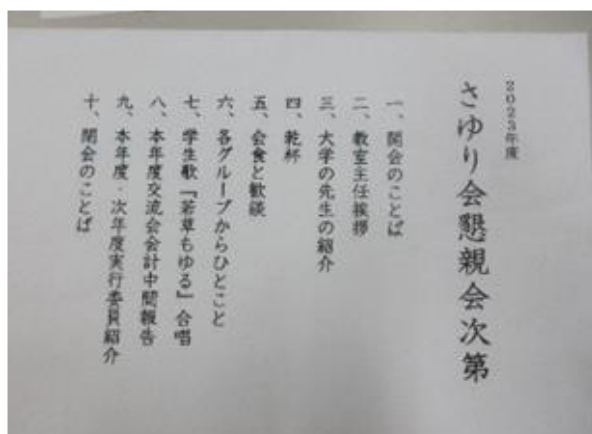 2023年度
さゆり会懇親会次第
一、開会のことば
二、教室主任挨拶
三、大学の先生の紹介
四、乾杯
五、会食と歓談
六、各グループからひとこと
七、学生歌「若草もゆる」合唱
八、本年度交流会会計中間報告
九、本年度・次年度実行委員紹介
十、閉会のことば